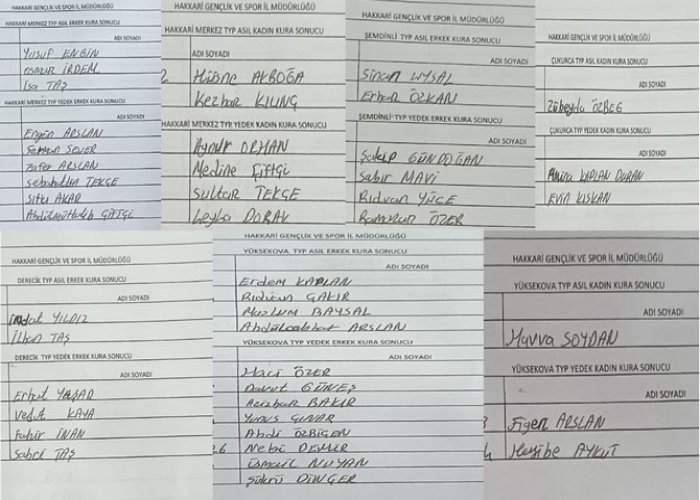 HAKKARİ GENÇLİK VE SPOR İL MÜDÜRLÜĞÜ
HAKKARİ MERKEZ TYP ASIL ERKEK KURA SONUCU
ADI SOYADI
Yusuf ENGİN
İRDEM
İsa TAŞ
HAKKARİ MERKEZ TYP YEDEK ERKEK KURA SONUCU
ADI SOYADI
Engin ARSLAN
SEVER
Zafer ARSLAN
Sebahattin TEKÇE
Sıtkı AKAR
ÇİFTÇİ
HAKKARİ GENÇLİK VE SPOR İL MÜDÜRLÜĞÜ
HAKKARİ MERKEZ TYP ASIL KADIN KURA SONUCU
ADI SOYADI
2 Hüsne AKBOĞA
Kezban KILINÇ
HAKKARİ MERKEZ TYP YEDEK KADIN KURA SONUCU
Aynur ORHAN
Medine ÇİFTÇİ
Sultan TEKÇE
Leyla DORAK
HAKKARİ GENÇLİK VE SPOR İL MÜDÜRLÜĞÜ
ŞEMDİNLİ TYP ASIL ERKEK KURA SONUCU
ADI SOYADI
Sinan UYSAL
Erhan ÖZKAN
ŞEMDİNLİ TYP YEDEK ERKEK KURA SONUCU
ADI SOYADI
Şakip GÜNDOĞAN
Sabır MAVİ
Rıdvan YÜCE
Ramazan ÖZER
HAKKARİ GENÇLİK VE SPOR İL MÜDÜRLÜĞÜ
ÇUKURCA TYP ASIL KADIN KURA SONUCU
ADI SOYADI
Zübeyda ÖZBEG
ÇUKURCA TYP YEDEK KADIN KURA SONUCU
ADI SOYADI
KAPLAN DURAN
Evin KISKAN
HAKKARİ GENÇLİK VE SPOR İL MÜDÜRLÜĞÜ
DERECİK TYP ASIL ERKEK KURA SONUCU
ADI SOYADI
YILDIZ
İlhan TAŞ
DERECİK TYP YEDEK ERKEK KURA SONUCU
ADI SOYADI
YAŞAR
Vedat KAYA
İNAN
Sabri TAŞ
HAKKARİ GENÇLİK VE SPOR İL MÜDÜRLÜĞÜ
YÜKSEKOVA TYP ASIL ERKEK KURA SONUCU
ADI SOYADI
Erdem KAPLAN
Rıdvan ÇAKIR
Mazlum BAYSAL
Abdülcabbar ARSLAN
YÜKSEKOVA TYP YEDEK ERKEK KURA SONUCU
ADI SOYADI
Haci ÖZER
Davut GÜNEŞ
Azizhan BAKIR
Yunus ÇINAR
Abdi ÖZBİGEN
26 Nebi DEMİR
İsmail NUYAN
Şükrü DİNÇER
HAKKARİ GENÇLİK VE SPOR İL MÜDÜRLÜĞÜ
YÜKSEKOVA TYP ASIL KADIN KURA SONUCU
ADI SOYADI
Havva SOYDAN
YÜKSEKOVA TYP YEDEK KADIN KURA SONUCU
ADI SOYADI
3 Figen ARSLAN
4 Hasibe AYKUT